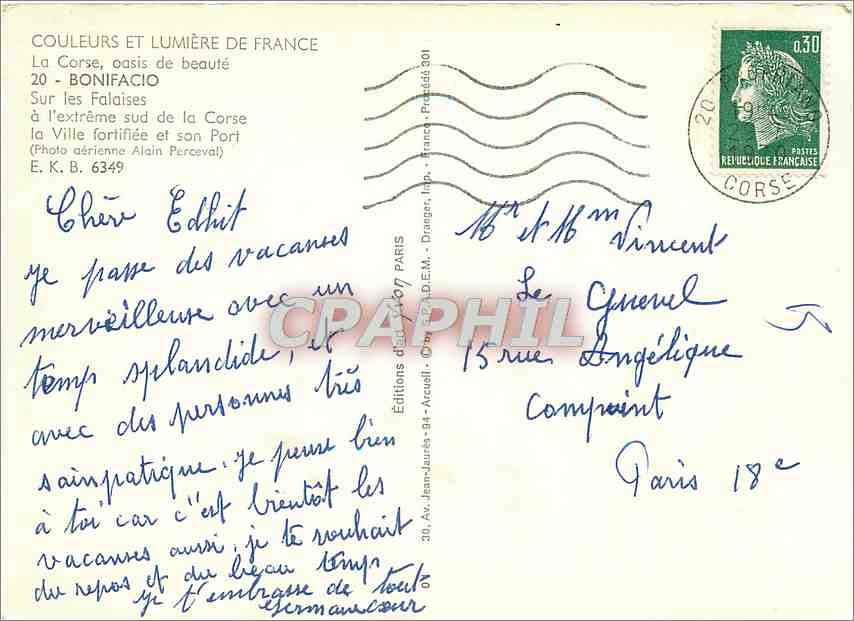 COULEURS ET LUMIÈRE DE FRANCE
La Corse, oasis de beauté
20 - BONIFACIO
Sur les Falaises
à l'extrême sud de la Corse
la Ville fortifiée et son Port
(Photo aérienne Alain Perceval)
E. K. B. 6349
Chère Edhit
je passe des vacanses
merveilleuse avec un
temp splandide, et
avec des personnes très
sainpatique. je pense bien
à toi car c'est bientôt les
vacanses aussi, je te souhait
du repos et du beau temp
je t'embrasse de tout
cœur
Germaine
Editions d'art yvon PARIS
30, Av. Jean-Jaurès - 94 - Arcueil - © by S.P.A.D.E.M. - Draeger, Imp. - France - Procédé 301
0,30
POSTES
REPUBLIQUE FRANÇAISE
20
CORSE
Mr et Mm Vincent
Le Guevel
15 rue Angélique
Compoint
Paris 18e
CPAPHIL